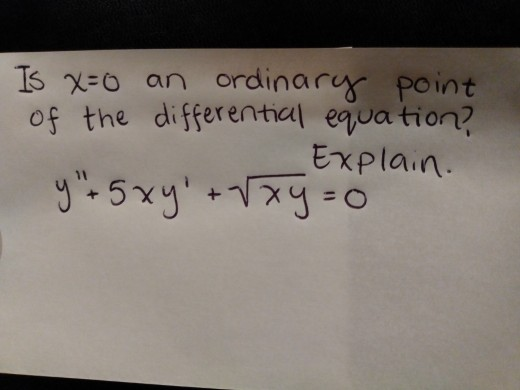 Is x=0 an ordinary point
of the differential equation?
Explain.
y"+5xy'+√xy=0